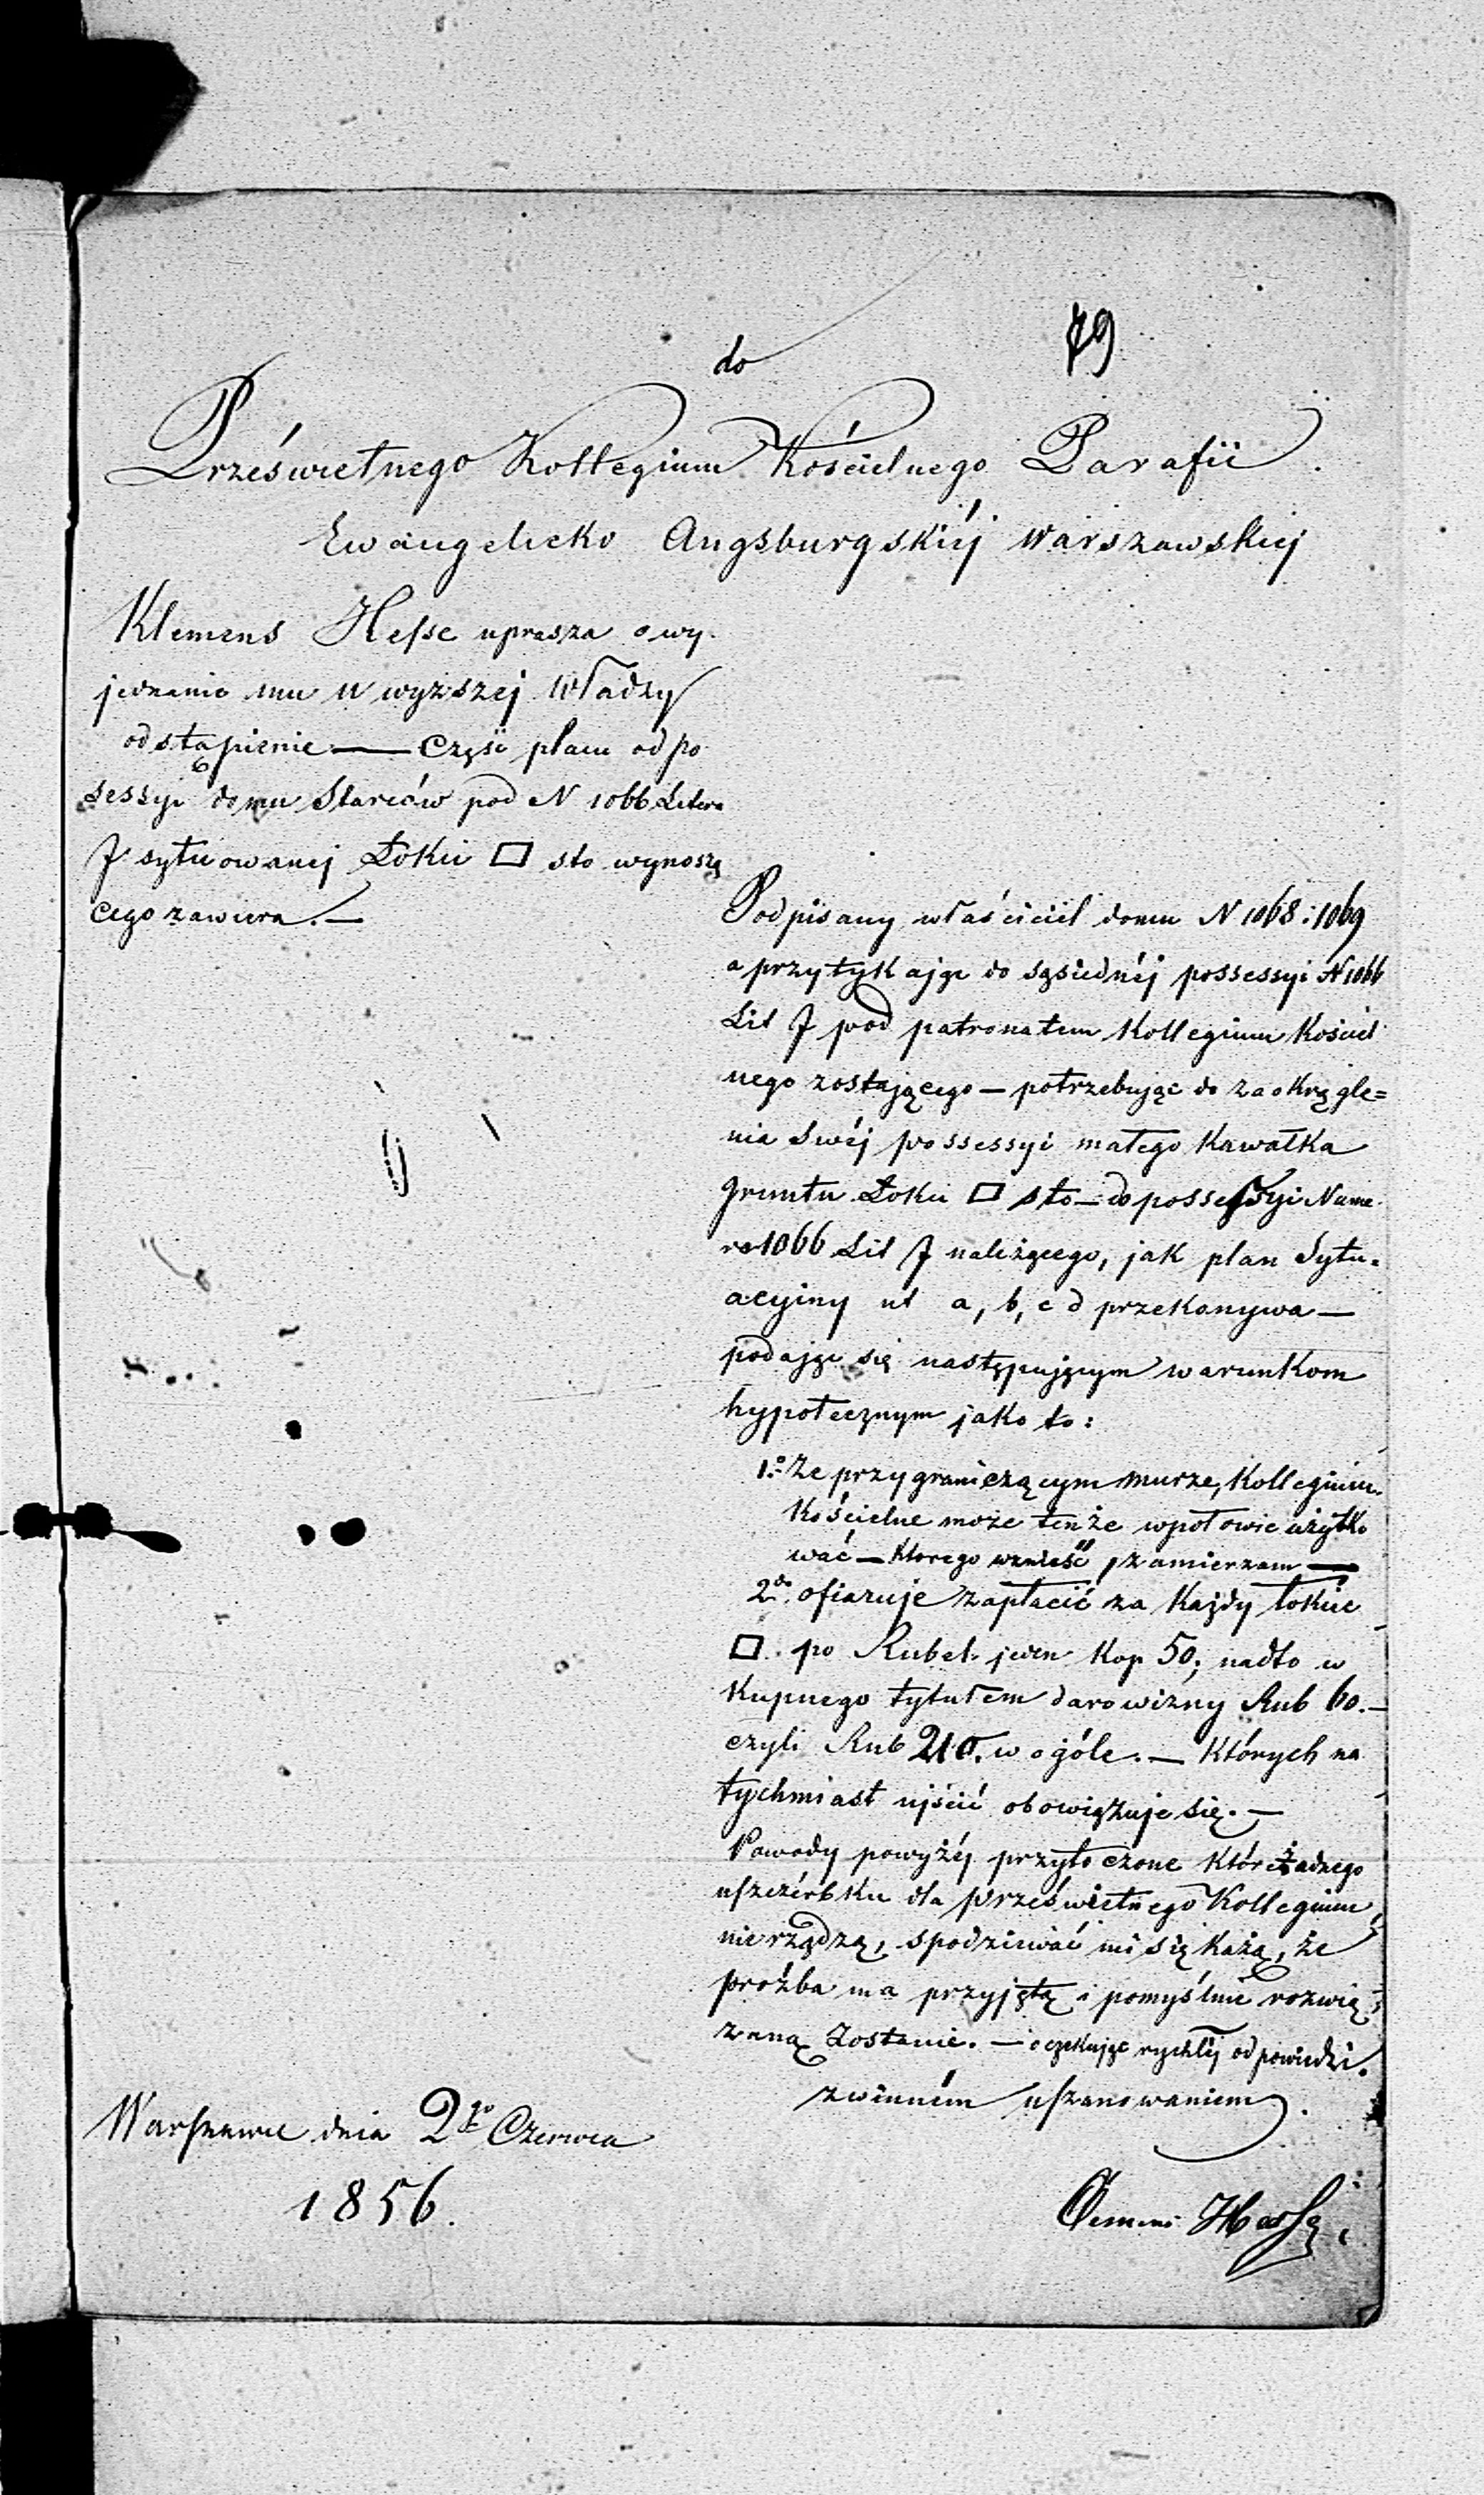 79
do
Prześwietnego Kollegium Kościelnego Parafii
Ewangelicko Augsburgskiéj Warszawskiej
Klemens Hesse uprasza o wy-
jednanie mu u wyższej Władzy
odstąpienie — części placu od po-
sessyi domu Starców pod N 1066 Litera
J sytuowanej Łokci □ sto wynoszą
cego zawiera. —
Podpisany właściciel domu N 1068: 1069
a przytykając do sąsiednéj possessyi N 1066
Lit J pod patronatem Kollegium Kościel
nego zostającego — potrzebując do zaokrągle=
nia swéj possessyi małego kawałka
gruntu Łokci □ sto — do possessyi Nume-
ro 1066 Lit J należącego, jak plan Sytu-
acyiny ut a, b, c d przekonywa —
podając się następującym warunkom
hypotecznym jako to:
1.o że przy graniczącym murze, Kollegium
Kościelne może tenże wpołowie użytko
wać — którego wznieść zamierzam —
2do ofiaruje zapłacić za każdy łokieć
□ po Rubel jeden kop 50; nadto w
kupnego tytułem darowizny Rub 60. —
czyli Rub 210. w ogóle. — Których na
tychmiast ujścić obowiązuje się. —
Powody powyżéj przytoczone które żadnego
uszczérbku dla prześwietnego Kollegium
nie rządzą, spodziewać mi się każą, że
proźba ma przyjętą i pomyślnie rozwią-
zaną zostanie. — oczekując rychłéj odpowiedzi.
z winném uszanowaniem
Warszawa dnia 2go Czerwca
1856.
Clemens Hesse